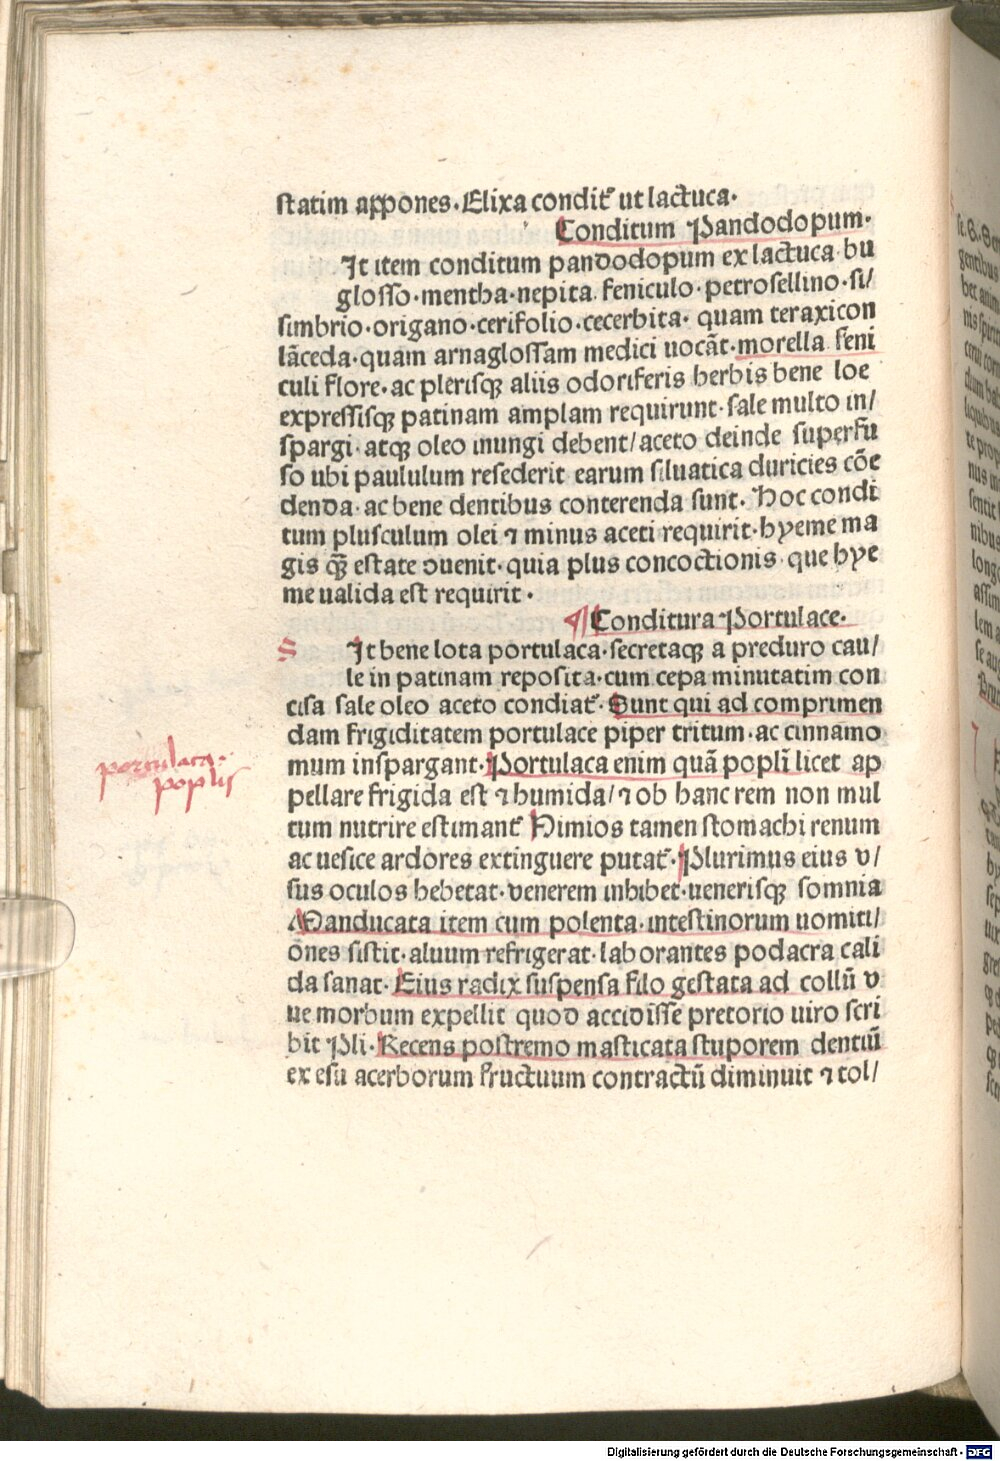 statim appones. Elixa condit᷑ ut lactuca.
Conditum Pandodopum.
It item conditum pandodopum ex lactuca. bu
glosso. mentha. nepita. feniculo. petrosellino. si/
simbrio. origano. cerifolio. cecerbita. quam teraxicon
lāceda. quam arnaglossam medici uocāt. morella. feni
culi flore. ac plerisqꝫ aliis odoriferis herbis bene loe
expressisqꝫ patinam amplam requirunt. sale multo in/
spargi. atqꝫ oleo inungi debent/ aceto deinde superfu
so ubi paululum resederit earum siluatica duricies cōe
denda. ac bene dentibus conterenda sunt. Hoc condi
tum plusculum olei ⁊ minus aceti requirit. hyeme ma
gis qꝫ̄ estate ↄuenit. quia plus concoctionis. que hye
me ualida est requirit.
Conditura Portulace.
S It bene lota portulaca. secretaqꝫ a preduro cau/
le in patinam reposita. cum cepa minutatim con
cisa sale oleo aceto condiat᷑. Sunt qui ad comprimen
dam frigiditatem portulace piper tritum. ac cinnamo
mum inspargant. Portulaca enim quā popli᷑ licet ap
pellare frigida est ⁊ humida/ ⁊ ob hanc rem non mul
tum nutrire estimant᷑ Nimios tamen stomachi renum
ac uesice ardores extinguere putat᷑. Plurimus eius v/
sus oculos hebetat. venerem inhibet. uenerisqꝫ somnia
Manducata item cum polenta. intestinorum uomiti/
ones sistit. aluum refrigerat. laborantes podacra cali
da sanat. Eius radix suspensa filo gestata ad collū v
ue morbum expellit quod accidisse pretorio uiro scri
bit Pli. Recens postremo masticata stuporem dentiū
ex esu acerborum fructuum contractū diminuit ⁊ tol/
portulaca.
poplis
Digitalisierung gefördert durch die Deutsche Forschungsgemeinschaft - DFG